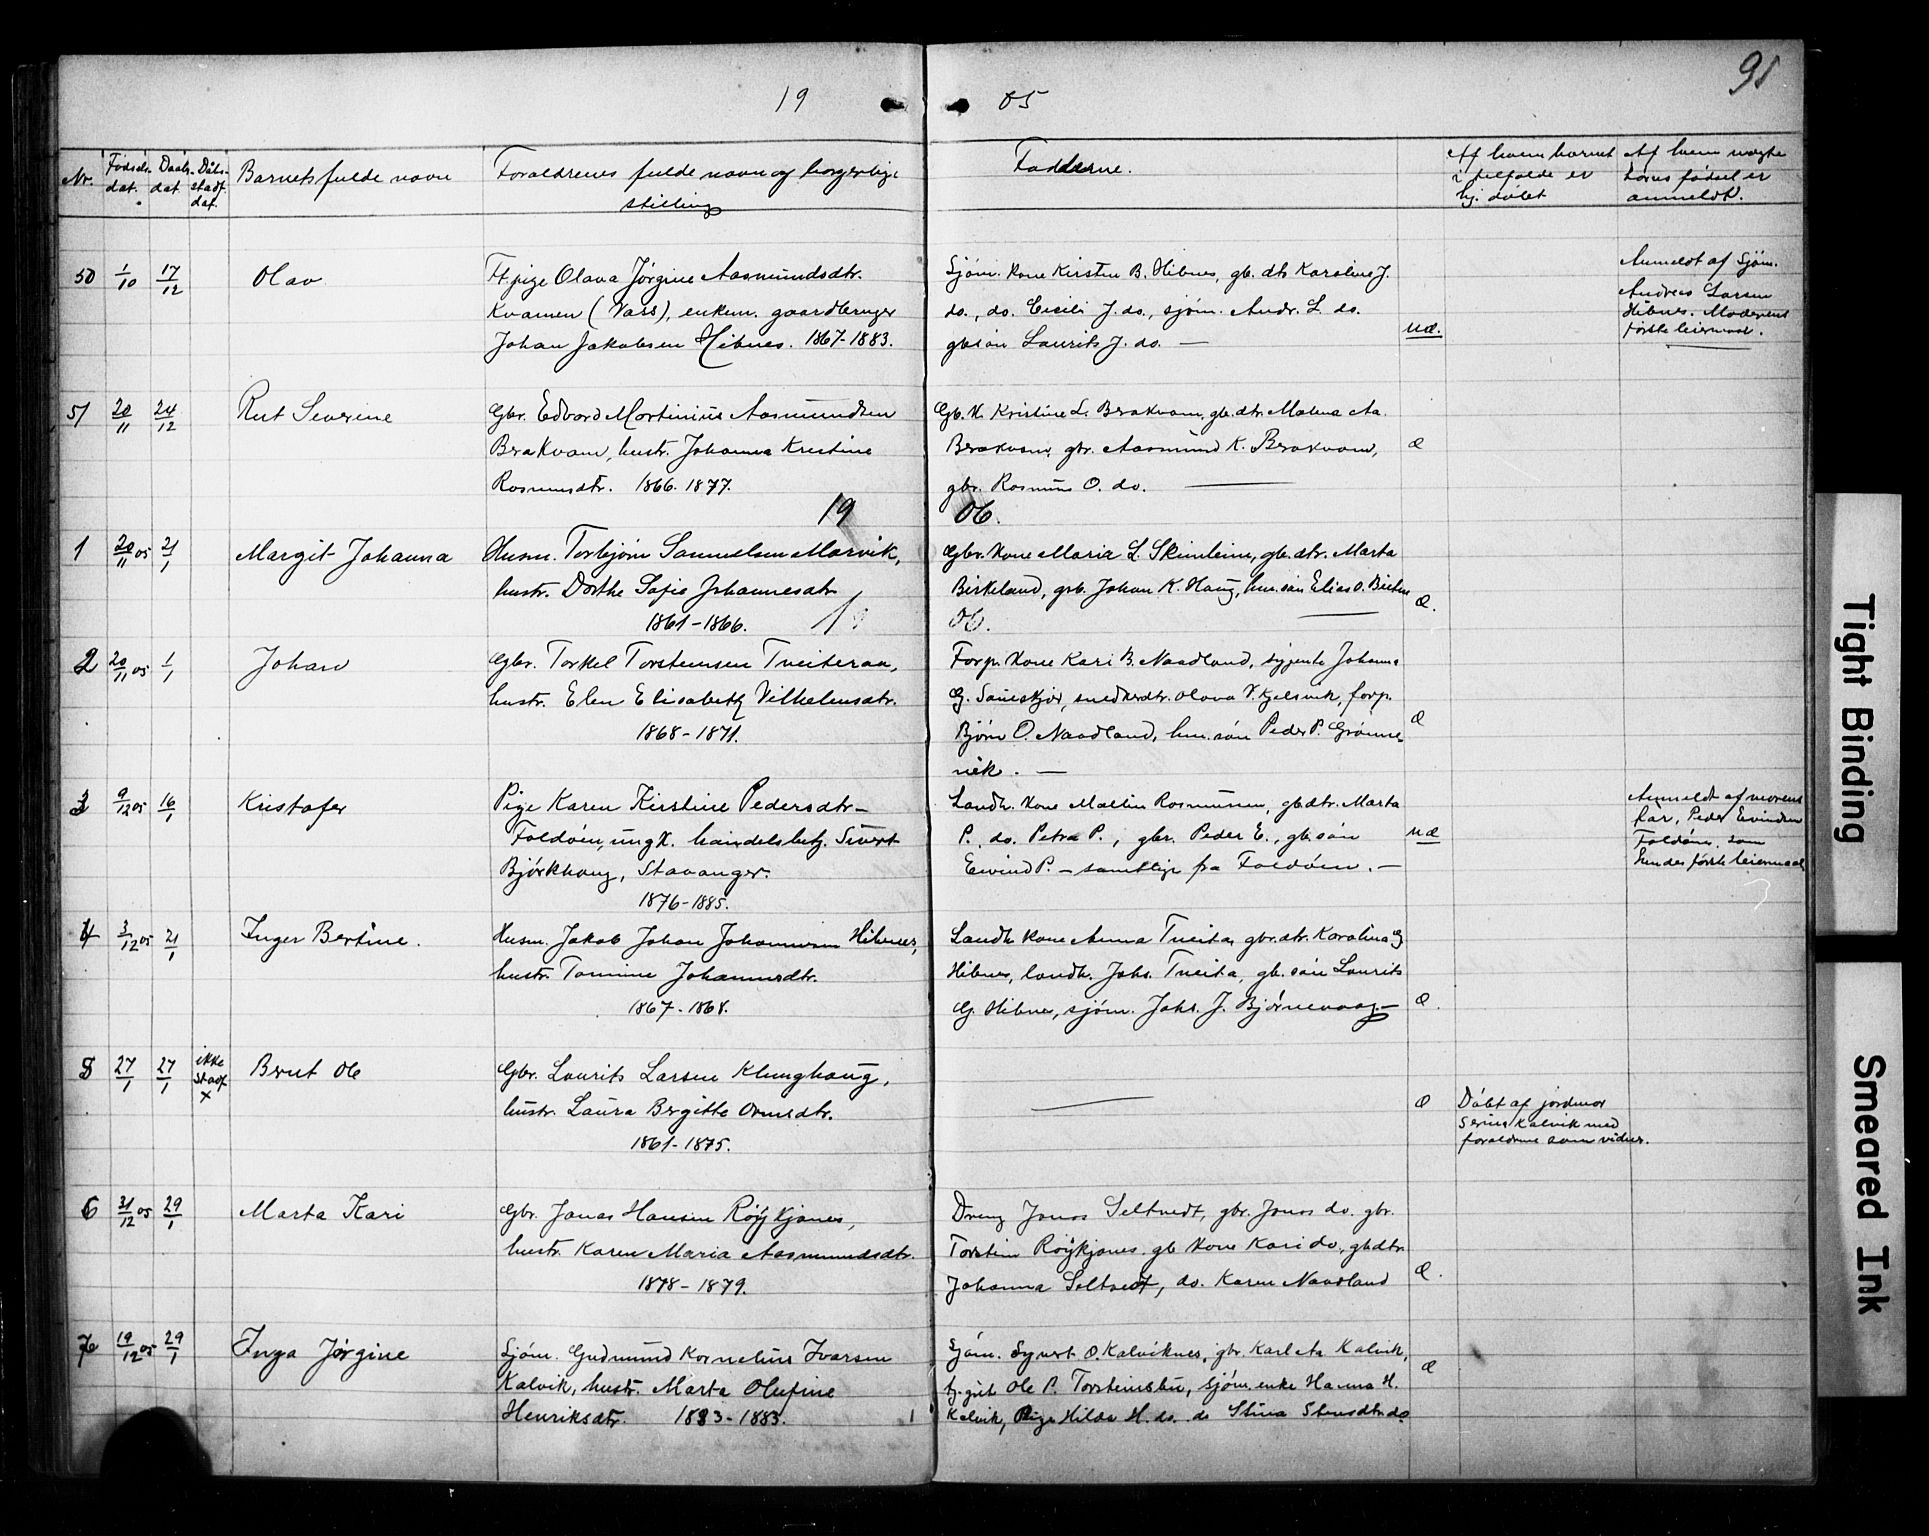 91
19 05
Nr. Fødsels dat. Daabs dat. Dåbs stadf. dat. Barnets fulde navn Forældrenes fulde navn og borgerlige stilling Fadderne. Af hvem barnet i tilfælde er hj. døbt Af hvem uægte barns fødsel er anmeldt.
50 1/10 17/12 Olav
Ft. pige Olava Jørgine Aasmundsdtr.
Kvamen (Vats), enkem. gaardbruger
Johan Jakobsen Hibnes. 1867-1883.
Sjøm. kone Kirsten B. Hibnes, gb. dtr Karoline J.
do., do. Cicili J. do., sjøm. Andr. L. do.
gb søn Laurits J. do. —
uæ.
Anmeldt af Sjøm.
Andreas Larsen
Hibnes. Moderens
første leiermaal.
51 20/11 24/12 Rut Severine
Gbr. Edvard Martinius Aasmundsen
Brekvam, hustr. Johanna Kristine
Rasmusdtr. 1866-1877.
Gb. k. Kristine L. Brekvam, gb. dtr. Malena Aa.
Brekvam, gbr. Aasmund K. Brekvam,
gbr. Rasmus O. do. —
æ
19 06.
1 20/11 05 21/1 Margit Johanna
Husm. Torbjørn Samuelsen Marvik,
hustr. Dorthe Sofie Johannesdtr
1861-1866.
Gbr. kone Maria L. Skimleim, gb. dtr. Marta
Birkeland, grb. Johan K. Haug, hm. søn Elias O.
æ.
19 06.
2 20/11 05 1/1 Johan
Gbr. Torkel Torsteinsen Tveiteraa,
hustr. Elen Elisabeth Vilhelmsdtr.
1868-1871.
Forp. kone Kari B. Naadland, sypente Johanna
G. Saueskjør, snedkerdtr. Olava V. Kjelsvik, forp.
Bjørn O. Naadland, hm. søn Peder P. Grønne-
vik. —
æ
3 9/12 05 16/1 Kristofer
Pige Karen Kirstine Pedersdtr-
Foldøen, ungk. handelsbetj. Sivert
Bjørkhaug, Stavanger.
1876-1885.
Landh. kone Mallin Rasmussen, gb dtr. Marta
P., do. Petra P., gbr. Peder E., gb. søn
Eivind P. — samtlige fra Foldøen. —
uæ
Anmeldt af morens
far, Peder Eivindsen
Foldøen, som
hendes første leiermaal
4 3/12 05 21/1 Inger Bertine.
Husm. Jakob Johan Johannessen Hibnes,
hustr. Tomine Johannesdtr.
1867-1868.
Landh. kone Anna Tveita, gbr. dtr. Karolina G
Hibnes, landh. Johs. Tveita, gb. søn Laurits
G. Hibnes, sjøm. Johs. J. Bjørnevaag —
æ.
5 27/1 27/1 ikke stadf x Bernt Ole
Gbr. Laurits Larsen Klunghaug,
hustr. Laura Bergitte Ormsdtr.
1861-1875.
—
æ
Døbt af jordmor
Serina Kalvik med
forældrene som vidner.
6 31/12 05 29/1 Marta Kari
Gbr. Jonas Hansen Røykjanes,
hustr. Karen Maria Aasmundsdtr.
1878-1879.
Dreng Jonas Seltvedt, gbr. Jonas do. gbr.
Torstein Røykjanes. gb kone Kari do., gb dtr
Johanna Seltvedt, do. Karen Naadland
æ.
7 19/12 05 29/1 Inga Jørgine
Sjøm. Gudmund Kornelius Ivarsen
Kalvik, hustr. Marta Olufine
Henriksdtr. 1883-1883.
Sjøm. Syvert O. Kalviknes, gbr. Karl Aa Kalvik,
tj. gut Ole P. Torsteinsbu, sjøm. enke Hanna H.
Kalvik, Pige Hilda H. do. do Stina Stensdtr. do
æ
Tight Binding
Smeared Ink